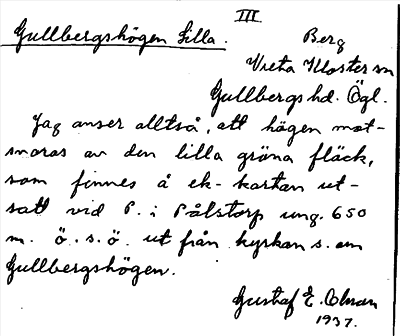 III
Gullbergshögen Lilla.
Berg
Vreta Kloster sn
Gullbergs hd. Ögl.
Jag anser alltså, att högen mot-
svaras av den lilla gröna fläck,
som finnes å ek-kartan ut-
satt vid P. i Pålstorp ung. 650
m. ö.s.ö. ut från kyrkan s. om
Gullbergshögen.
Gustaf E.
1937.